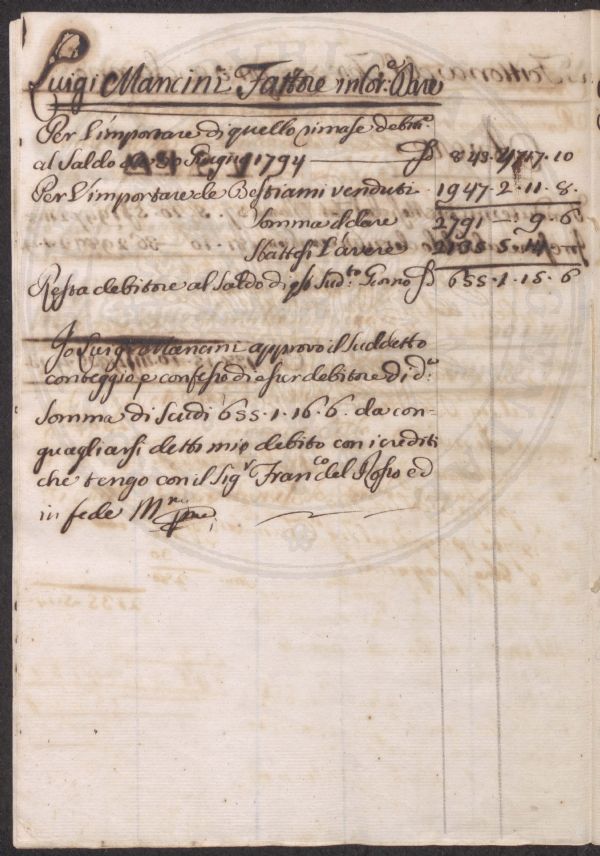 Luigi Mancini Fattore in Cor.o Dare
Per l'importare di quello rimase debit.e
al Saldo 30 Giugno 1794 843 17.10
Per l'importare de Bestiami venduti 1947.2.11.8.
Somma il dare 2791 — 9.6
Sbattesi l'avere 2135.5.14
Resta debitore al Saldo di Sud.to Giorno 655.1.15.6
Io Luigi Mancini approvo il Suddetto
conteggio e confesso di esser debitore di d.a
Somma di Scudi 655.1.16.6. da con-
guagliarsi detto mio debito con i crediti
che tengo con il Sig.r Fran.co del Rosso ed
in fede M